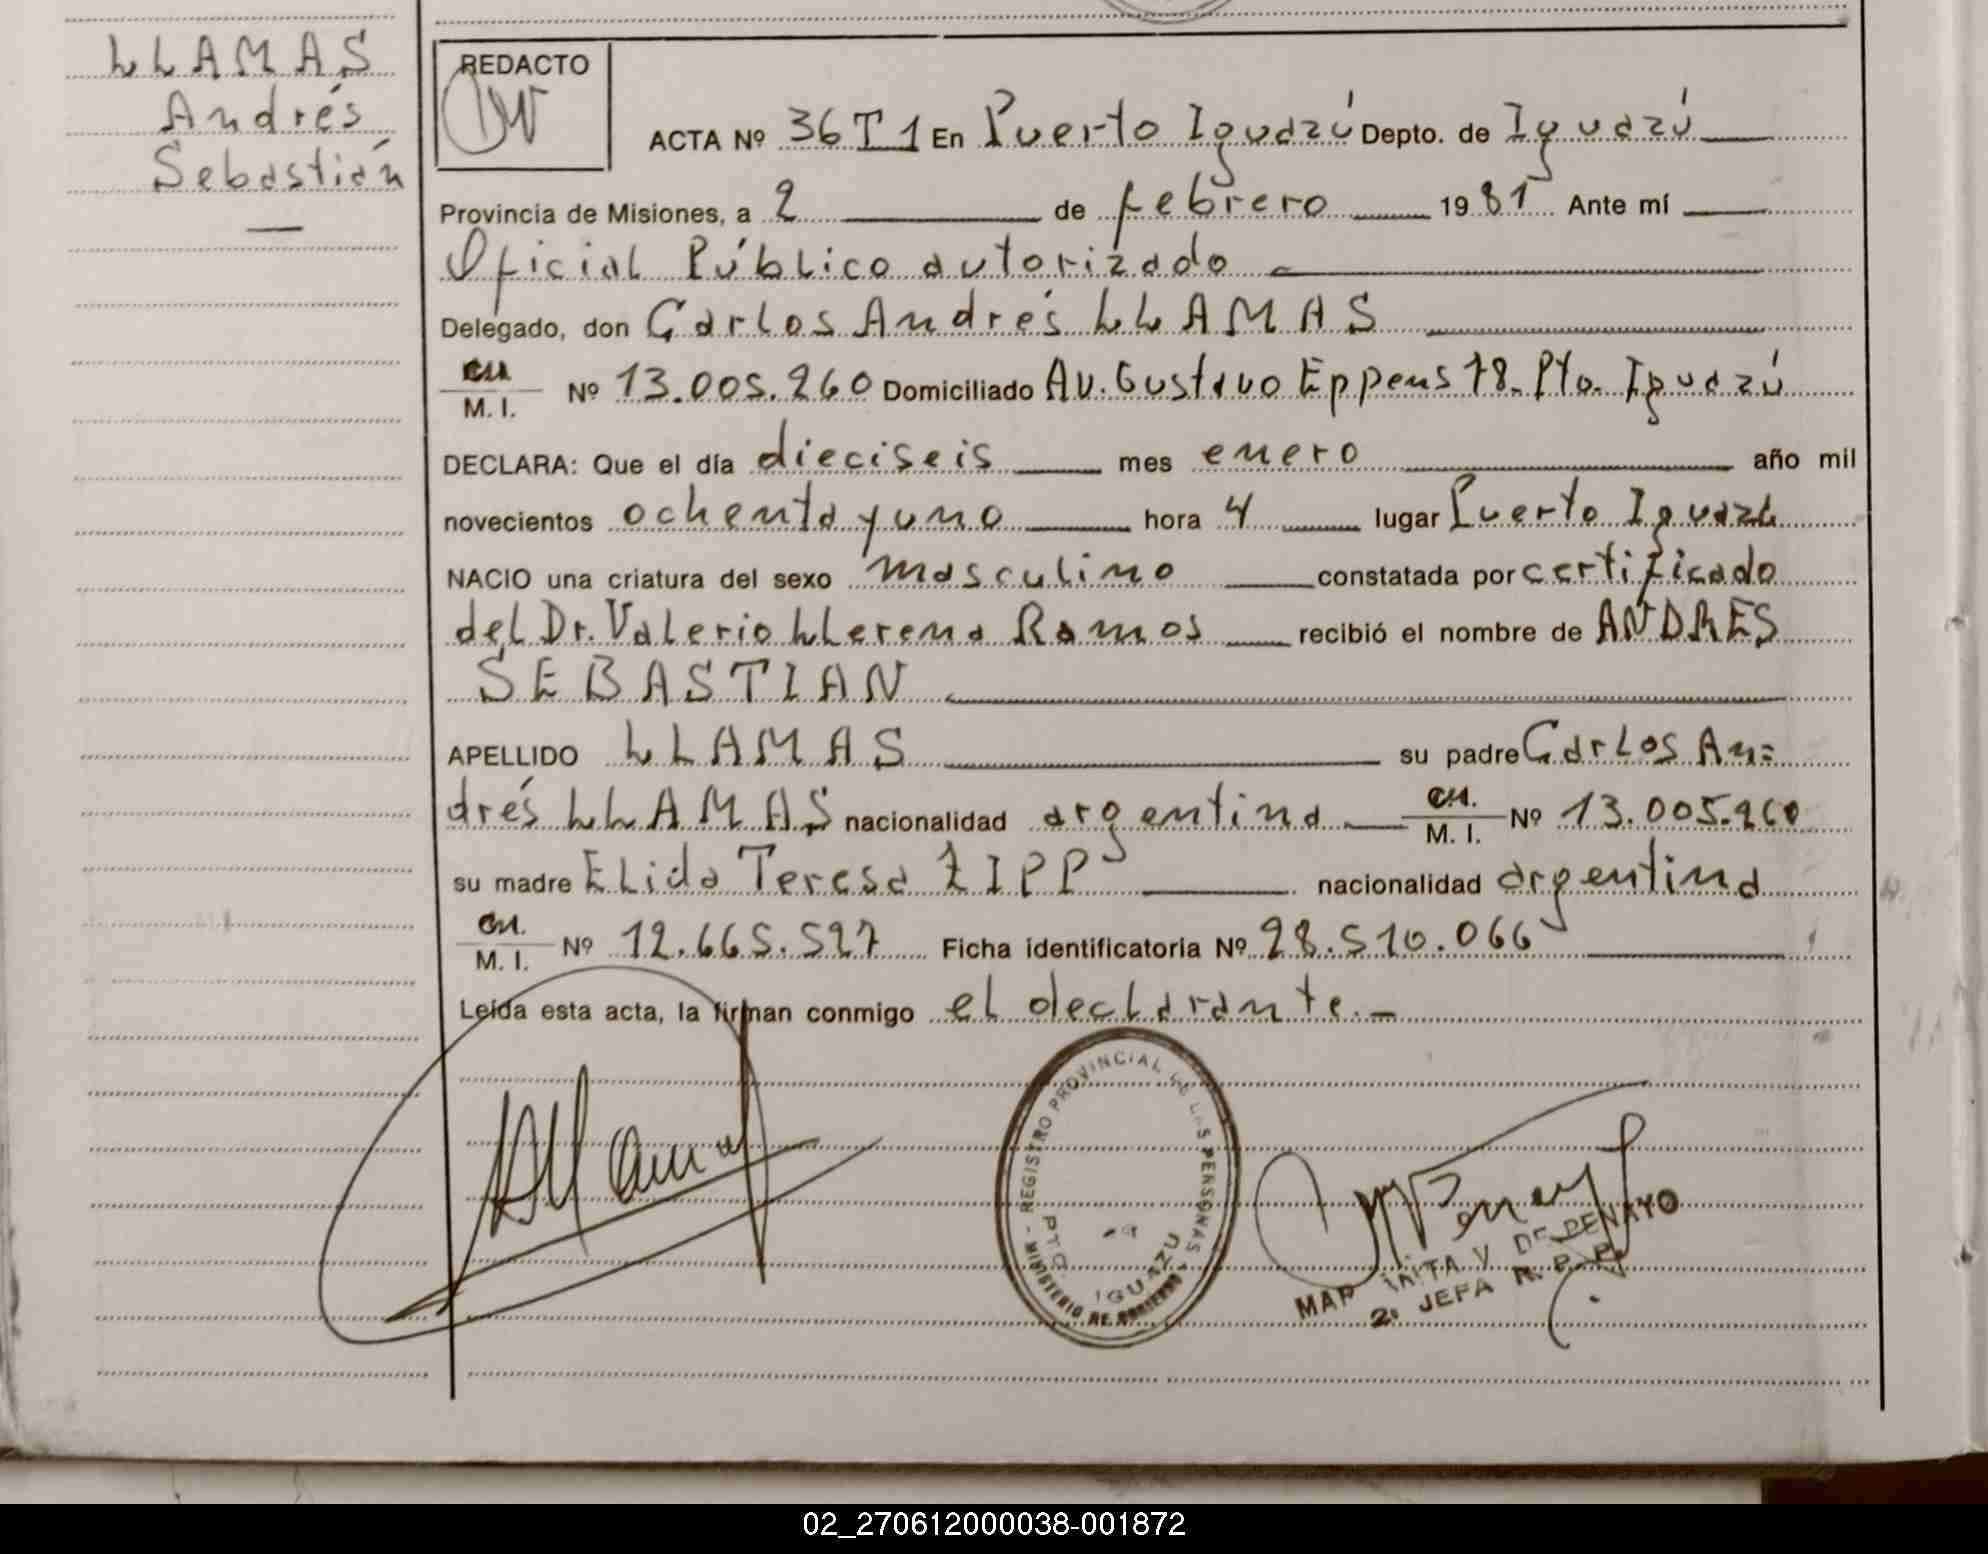 LLAMAS
Andrés
Sebastián
REDACTO
ACTA Nº 36 T 1 En Puerto Iguazú Depto. de Iguazú
Provincia de Misiones, a 2 de febrero 1981 Ante mí
Oficial Público autorizado
Delegado, don Carlos Andrés LLAMAS
M. I. Nº 13.005.260 Domiciliado Av. Gustavo Eppens 78. Pto. Iguazú
DECLARA: Que el día dieciseis mes enero año mil
novecientos ochenta y uno hora 4 lugar Puerto Iguazú
NACIO una criatura del sexo masculino constatada por certificado
del Dr. Valerio Llerena Ramos recibió el nombre de ANDRES
SEBASTIAN
APELLIDO LLAMAS su padre Carlos An=
drés LLAMAS nacionalidad argentina M. I. Nº 13.005.260
su madre Elida Teresa ZIPP nacionalidad argentina
M. I. Nº 12.665.527 Ficha identificatoria Nº 28.510.066
Leída esta acta, la firman conmigo el declarante.-
REGISTRO PROVINCIAL DE LAS PERSONAS
PTO. IGUAZU
MINISTERIO DE GOBIERNO
V. DE PENAYO
2º JEFA R. P. P.
02_270612000038-001872